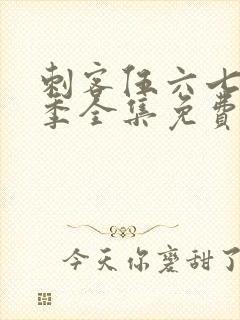 刺客伍六七
季全集免费
今天你磨甜了